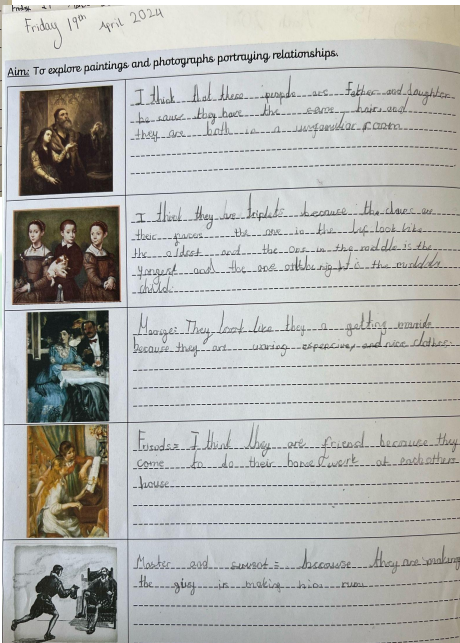 Friday 19th April 2024
Aim: To explore paintings and photographs portraying relationships.
I think that these people are Father and daughter
because they have the same hair and
they are both in a room
I think they are triplets because the
their faces the one in the look like
the oldest and the one in the middle is the
yongest and the one at the right is the middle
child.
They look like they a getting
because they are waring and nice clothes
Friends = I think they are friend because they
come to do their home work at each others
house
Master and = because they are making
the guy is making him